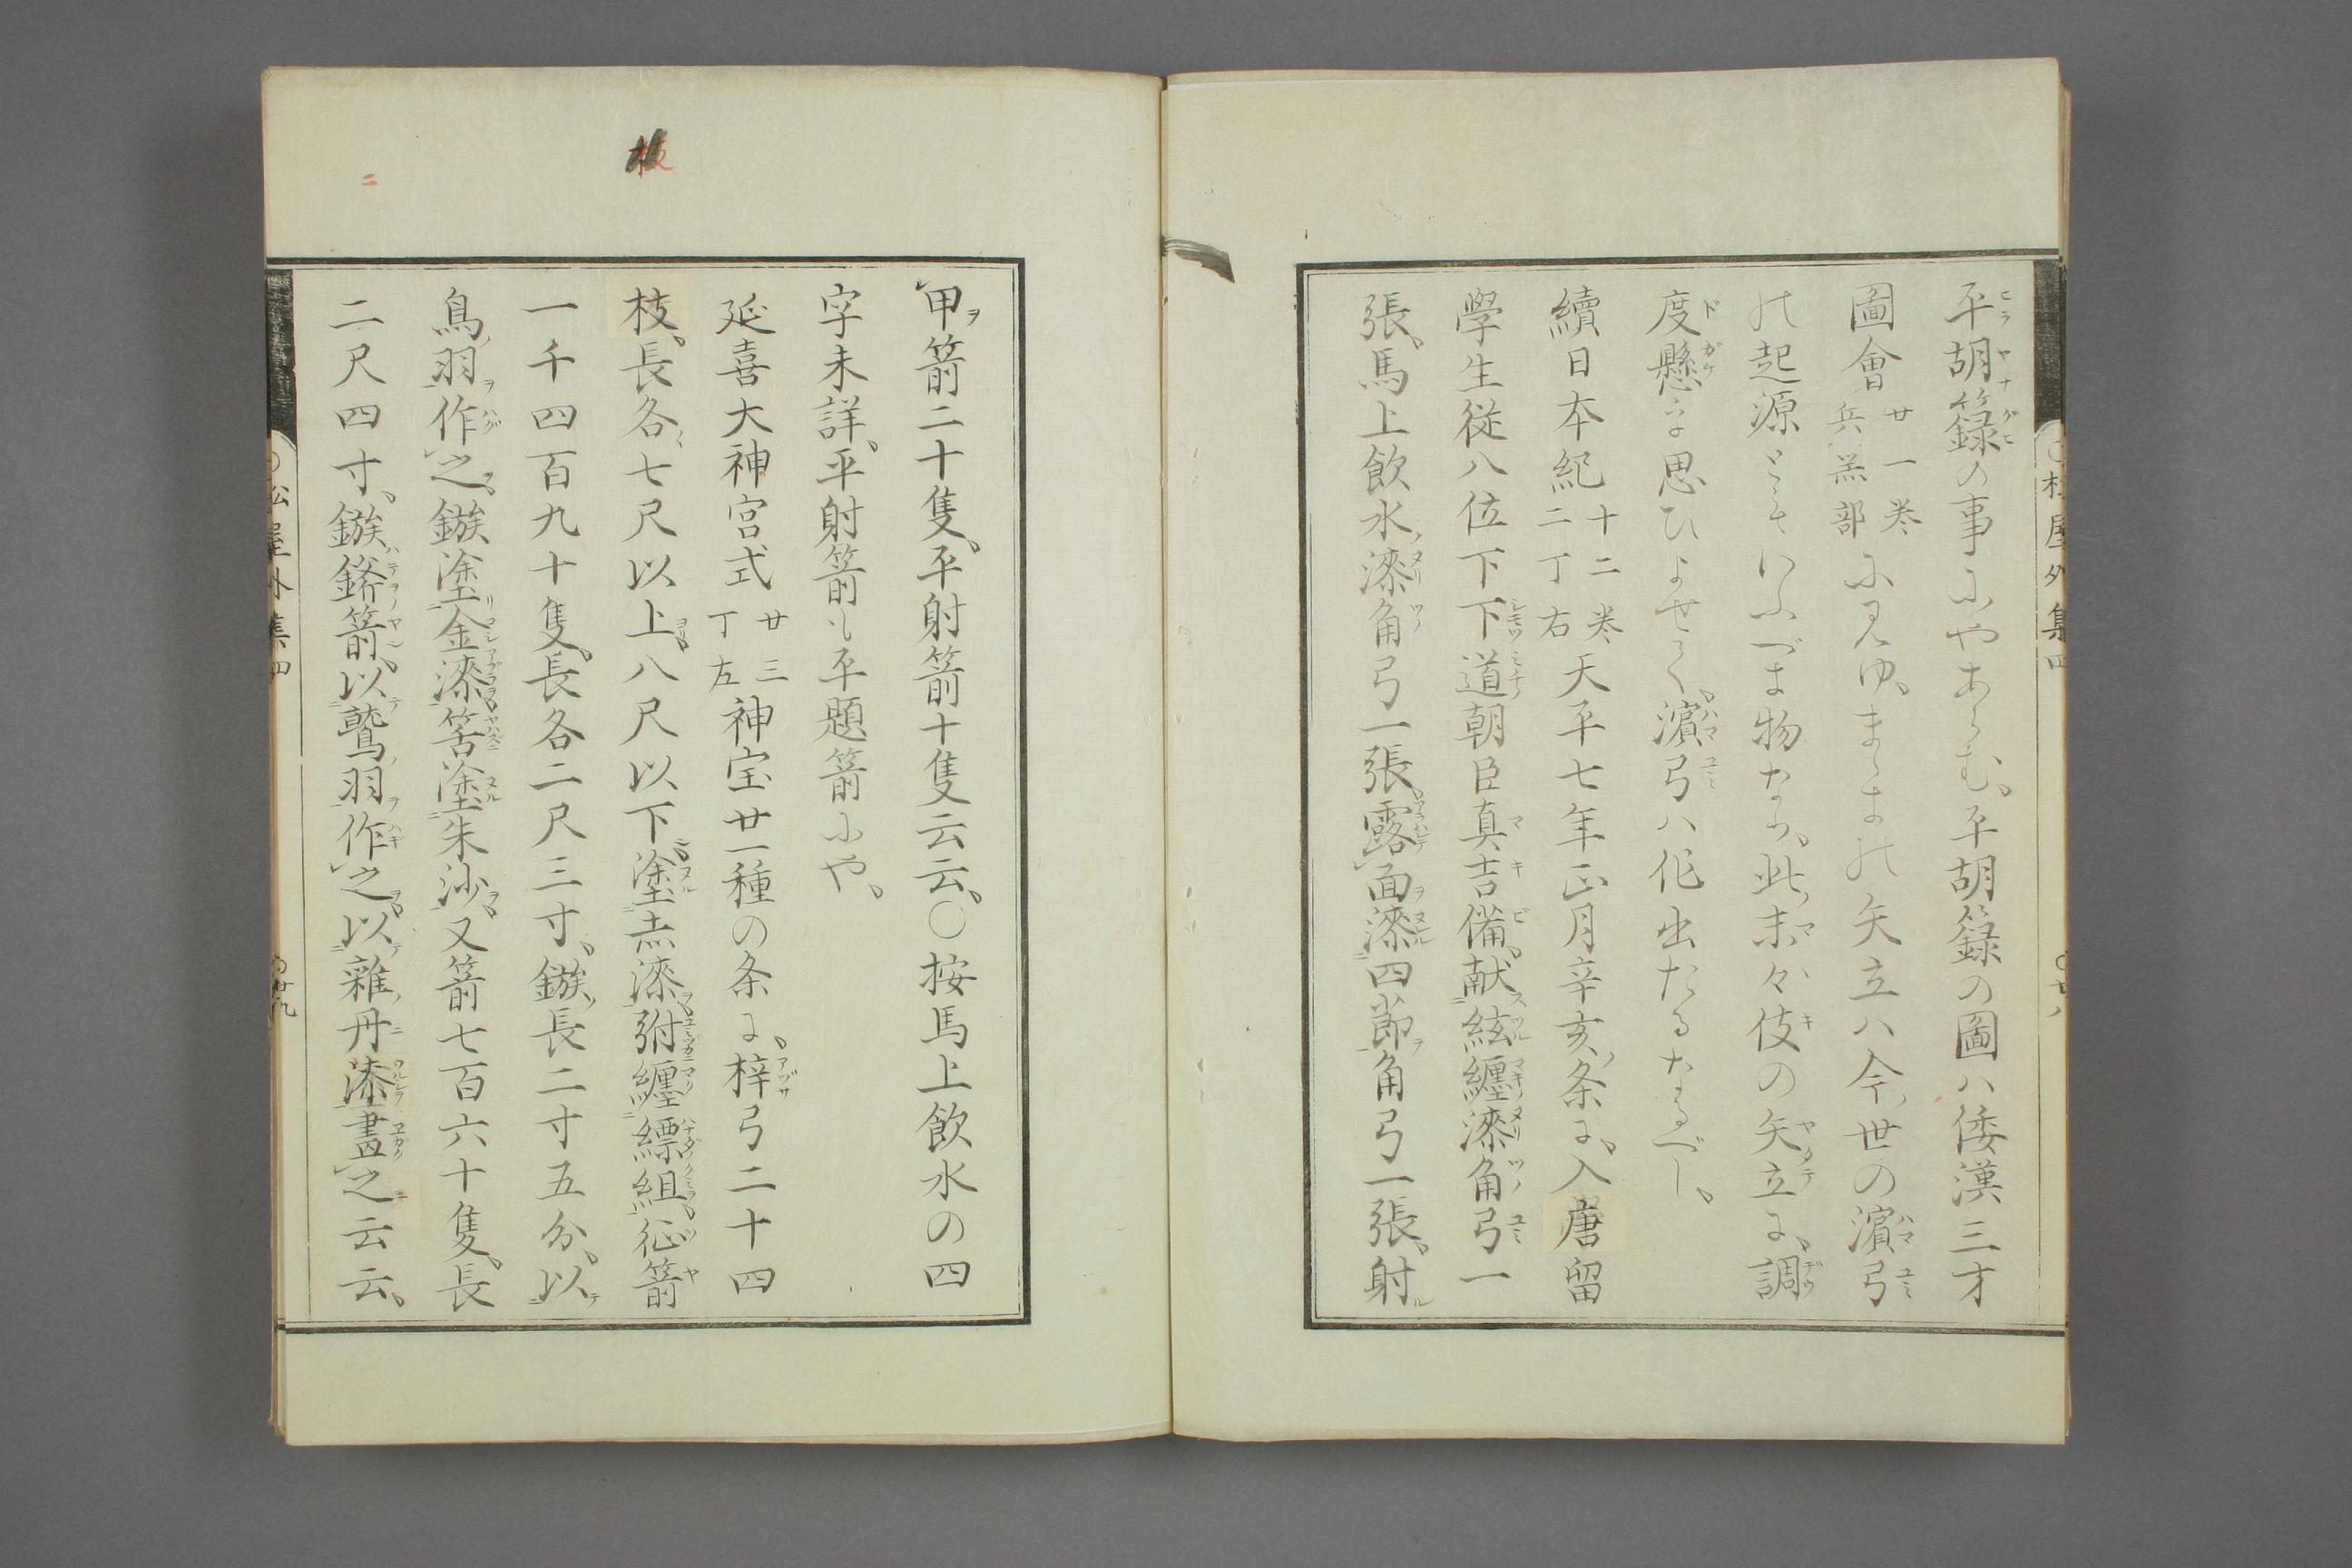 平胡籙の事にやあらむ、平胡籙の圖ハ倭漢三才
圖會廿一巻兵器部に見ゆ、まゝきの矢立ハ今ノ世の濱弓
の起源ともいふべき物なり、此末々伎の矢立に、調
度懸を思ひよせて、濱弓ハ作出たるなるべし、
續日本紀十二巻二丁右天平七年正月辛亥ノ条に、入唐留
學生従八位下下道朝臣真吉備、献絃纏漆角弓一
張、馬上飲水漆角弓一張、露面漆四節角弓一張、射
甲箭二十隻、平射箭十隻云云、○按馬上飲水の四
字未詳、平射箭も平題箭にや、
延喜大神宮式廿三丁左神宝廿一種の条に、梓弓二十四
枝、長各七尺以上、八尺以下塗赤漆弣纏縹組、征箭
一千四百九十隻、長各二尺三寸、鏃長二寸五分、以
鳥羽作之、鏃塗金漆筈塗朱沙、又箭七百六十隻、長
二尺四寸、鏃鏘箭、以鷲羽作之、以雜丹漆畫之云云、
松屋外集四
枝
ニ